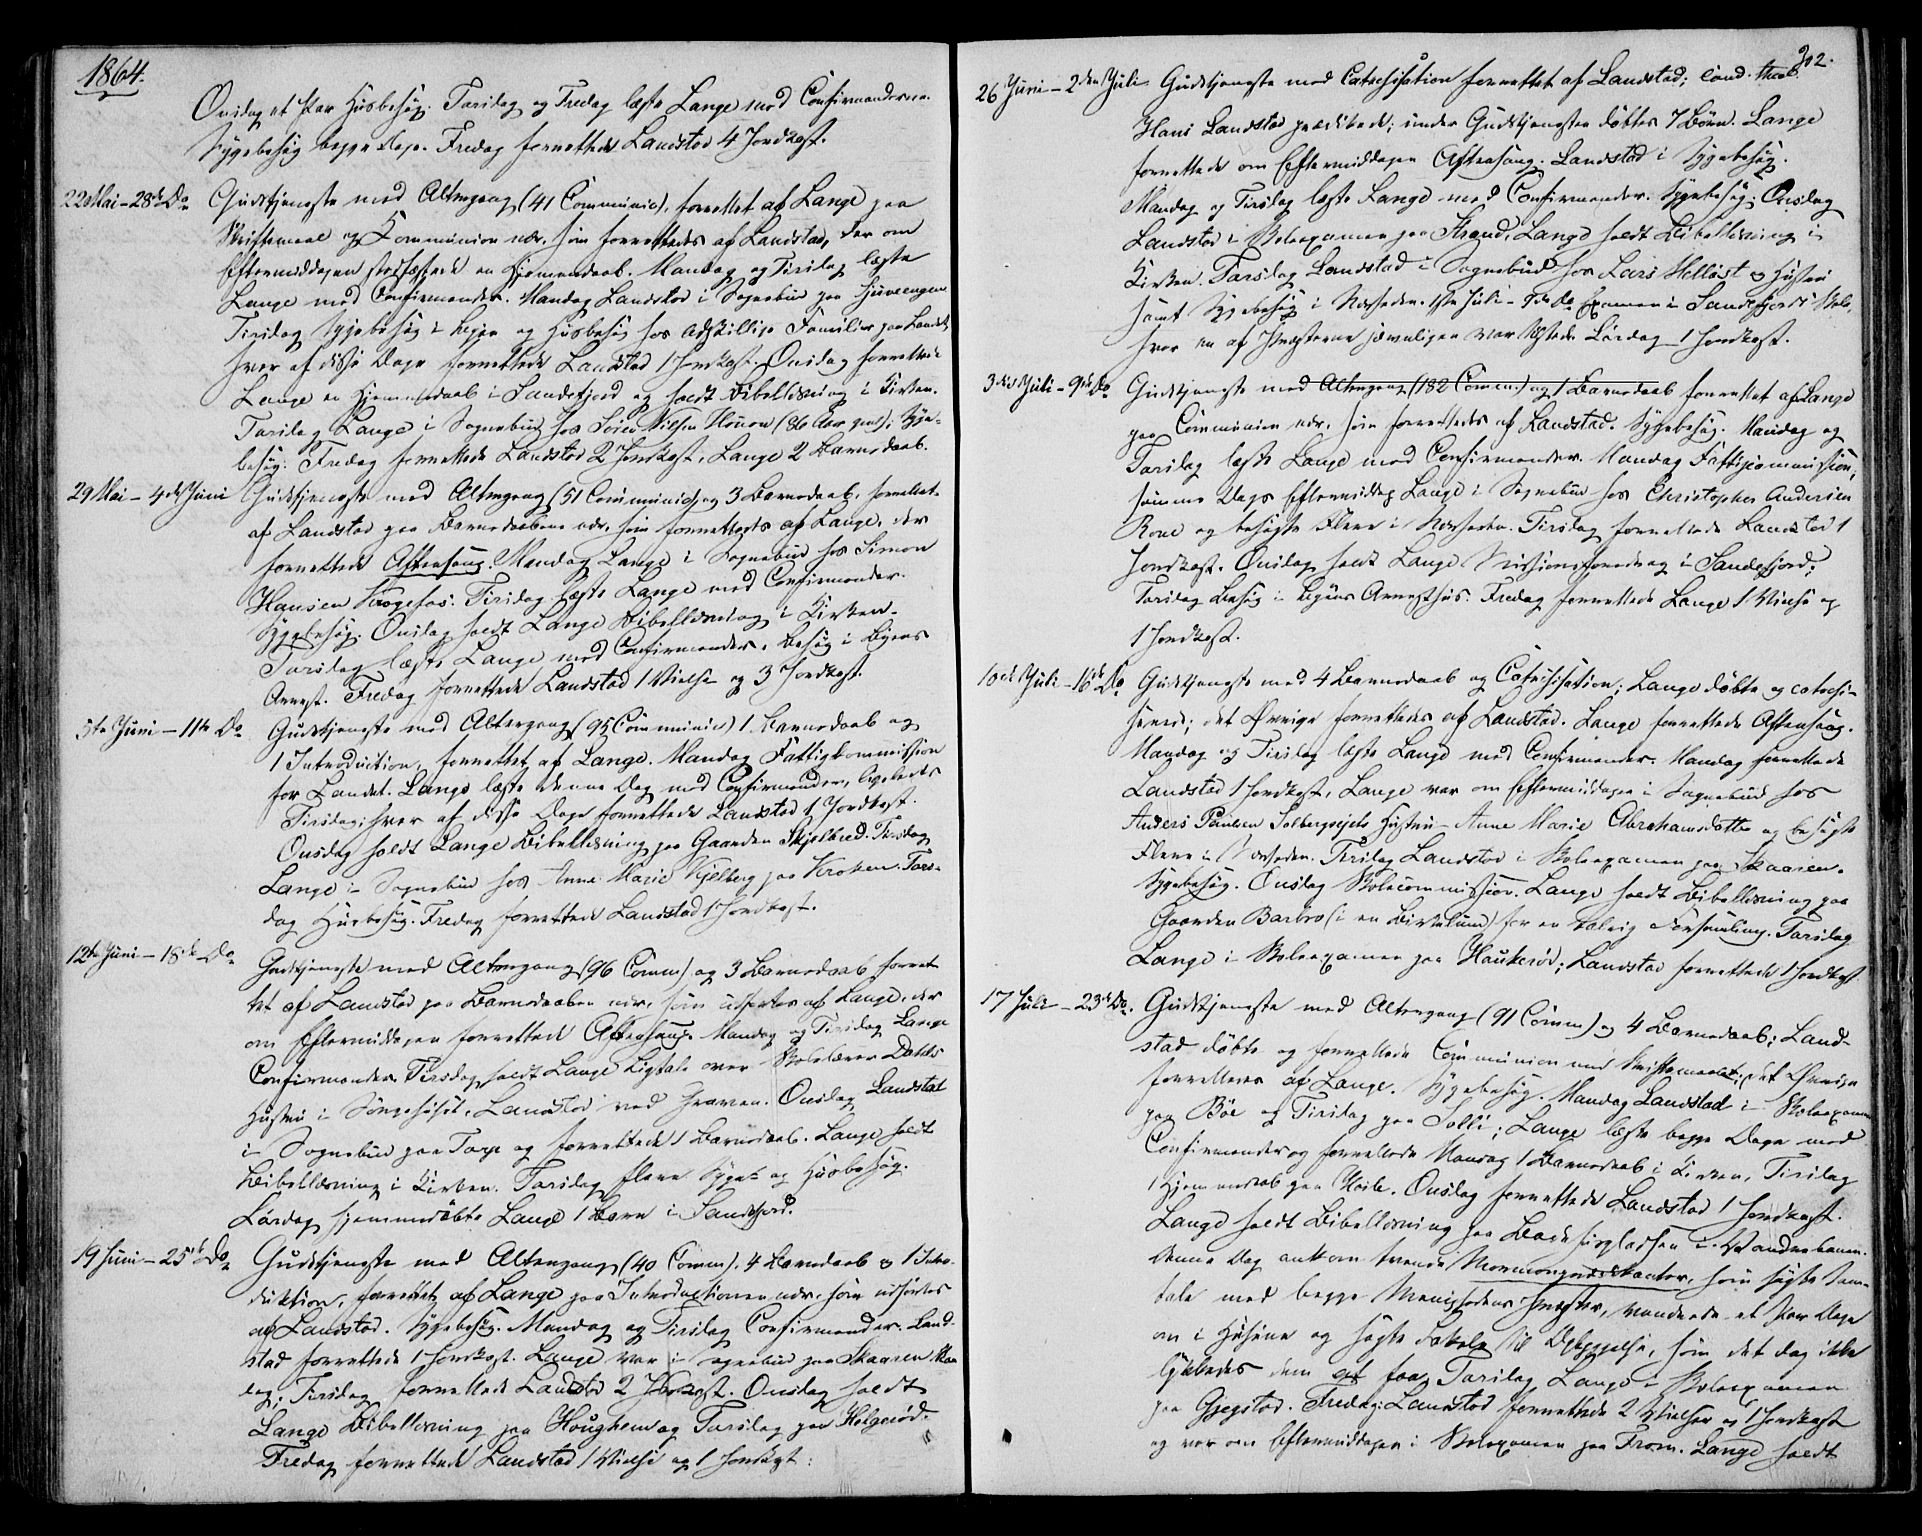 1864.
Onsdag et Par Husbesøg. Torsdag og Fredag læste Lange med Confirmanderne.
Sygebesøg begge Dage. Fredag forrettede Landstad 4 Jordkast.
22 Mai – 28de Do Gudstjeneste med Altergang (41 Communic), forrettet af Lange paa
Skriftemaal og Kommunion nær, som forrettedes af Landstad, der om
Eftermiddagen stadfæstede en Hjemmedaab. Mandag og Tirsdag læste
Lange med Confirmander. Mandag Landstad i Sognebud paa
Tirsdag Sygebesøg i og Husbesøg hos adskillige Familier paa Landet,
hver af disse Dage forrettede Landstad 1 Jordkast. Onsdag forrettede
Lange en Hjemmedaab i Sandefjord og holdt Bibellæsning i Kirken.
Torsdag Lange i Sognebud hos Søren Nilsen (86 Aar gml); Syge-
besøg. Fredag forrettede Landstad 2 Jordkast, Lange 2 Barnedaab.
29 Mai – 4de Juni Gudstjeneste med Altergang (51 Communic) og 3 Barnedaab, forrettet
af Landstad paa Barnedaabene nær, som forrettedes af Lange, der
forrettede Aftensang. Mandag Lange i Sognebud hos Simon
Hansen Krogefos. Tirsdag læste Lange med Confirmander.
Sygebesøg. Onsdag holdt Lange Bibellæsning i Kirken.
Torsdag læste Lange med Confirmander, Besøg i Byens
Arrest. Fredag forrettede Landstad 1 Vielse og 3 Jordkast.
5te Juni – 11te Do Gudstjeneste med Altergang (95 Communic) 1 Barnedaab og
1 Introduction, forrettet af Lange. Mandag Fattigkommission
for Landet. Lange læste denne Dag med Confirmander, ligeledes
Tirsdag; hver af disse Dage forrettede Landstad 1 Jordkast.
Onsdag holdt Lange Bibellæsning paa Gaarden Skjelbred. Torsdag
Lange i Sognebud hos Anne Marie Kjelberg paa Kroken. Tors-
dag Husbesøg. Fredag forrettede Landstad 1 Jordkast.
12te Juni – 18de Do Gudstjeneste med Altergang (96 Comm) og 3 Barnedaab forret-
tet af Landstad paa Barnedaaben nær, som udførtes af Lange, der
om Eftermiddagen forrettede Aftensang. Mandag og Tirsdag Lange
Confirmander. Tirsdag holdt Lange Ligtale over Skolelærer Dahls
Hustru i Sørgehuset, Landstad ved Graven. Onsdag Landstad
i Sognebud paa Torp og forrettede 1 Barnedaab. Lange holdt
Bibellæsning i Kirken. Torsdag flere Syge- og Husbesøg.
Lørdag hjemmedøbte Lange 1 Barn i Sandefjord.
19 Juni – 25de Do Gudstjeneste med Altergang (40 Comm), 4 Barnedaab og 1 Intro-
duktion, forrettet af Lange paa Introductionen nær, som udførtes
af Landstad. Sygebesøg. Mandag og Tirsdag Confirmander. Land-
stad forrettede 1 Jordkast. Lange var i Sognebud paa Skaaren Man-
dag; Tirsdag forrettede Landstad 2 Jordkast. Onsdag holdt
Lange Bibellæsning paa Haughem og Torsdag paa Helgerød.
Fredag forrettede Landstad 1 Vielse og 1 Jordkast.
202.
26 Juni – 2den Juli Gudstjeneste med Catechisation forrettet af Landstad; cand. theol.
Hans Landstad prædikede; under Gudstjenesten døbtes 7 Børn. Lange
forrettede om Eftermiddagen Aftensang. Landstad i Sygebesøg.
Mandag og Tirsdag læste Lange med Confirmander. Sygebesøg. Onsdag
Landstad i Skoleexamen paa Strand, Lange holdt Bibellæsning i
Kirken. Torsdag Landstad i Sognebud hos Lars Hustru
samt Sygebesøg i Nærheden. 1ste Juli – 9de Do Examen i Sandefjords Skole,
hvor en af Præsterne jævnligen var tilstede. Lørdag 1 Jordkast.
3die Juli – 9de Do Gudstjeneste med Altergang (182 Comm.) og 1 Barnedaab forrettet af Lange
paa Communion nær, som forrettedes af Landstad. Sygebesøg. Mandag og
Torsdag læste Lange med Confirmander. Mandag Fattigcommission,
samme Dags Eftermiddag Lange i Sognebud hos Christopher Andersen
og besøgte Flere i Nærheden. Tirsdag forrettede Landstad 1
Jordkast. Onsdag holdt Lange Missionsforedrag i Sandefjord;
Torsdag Besøg i Byens Arresthus. Fredag forrettede Lange 1 Vielse og
1 Jordkast.
10de Juli – 16de Do Gudstjeneste med 4 Barnedaab og Catechisation; Lange døbte og catechi-
serede; det Øvrige forrettedes af Landstad. Lange forrettede Aftensang.
Mandag og Tirsdag læste Lange med Confirmander. Mandag forrettede
Landstad 1 Jordkast, Lange var om Eftermiddagen i Sognebud hos
Anders Paulsen Solbergejets Hustru Anne Marie Abrahamsdotter og besøgte
Flere i Nærheden. Tirsdag Landstad i Skoleexamen paa Skaaren.
Sygebesøg. Onsdag Skolecommission. Lange holdt Bibellæsning paa
Gaarden Barbro (i en Birkelund) for en talrig Forsamling. Torsdag
Lange i Skoleexamen paa Haukerød; Landstad forrettede 1 Jordkast
17 Juli – 23de Do. Gudstjeneste med Altergang (91 Comm) og 4 Barnedaab; Land-
stad døbte og forrettede Communion med Skriftemaalet; det Øvrige
forrettedes af Lange. Sygebesøg. Mandag Landstad i Skoleexamen
paa Bøe og Tirsdag paa Solli; Lange læste begge Dage med
Confirmander og forrettede Mandag 1 Barnedaab i Kirken, Tirsdag
1 Hjemmedaab paa. Onsdag forrettede Landstad 1 Jordkast.
Lange holdt Bibellæsning paa
Denne Dag ankom trende Mormonpredikanter, som søgte Sam-
tale med begge Menighedens Præster, vandrede et Par Dage
om i Husene og søgte Lokale til Opbyggelse, som det dog ikke
lykkedes dem at faa. Torsdag Lange i Skoleexamen
paa Gjegstad. Fredag Landstad forrettede 2 Vielser og 1 Jordkast
og var om Eftermiddagen i Skoleexamen paa From. Lange holdt